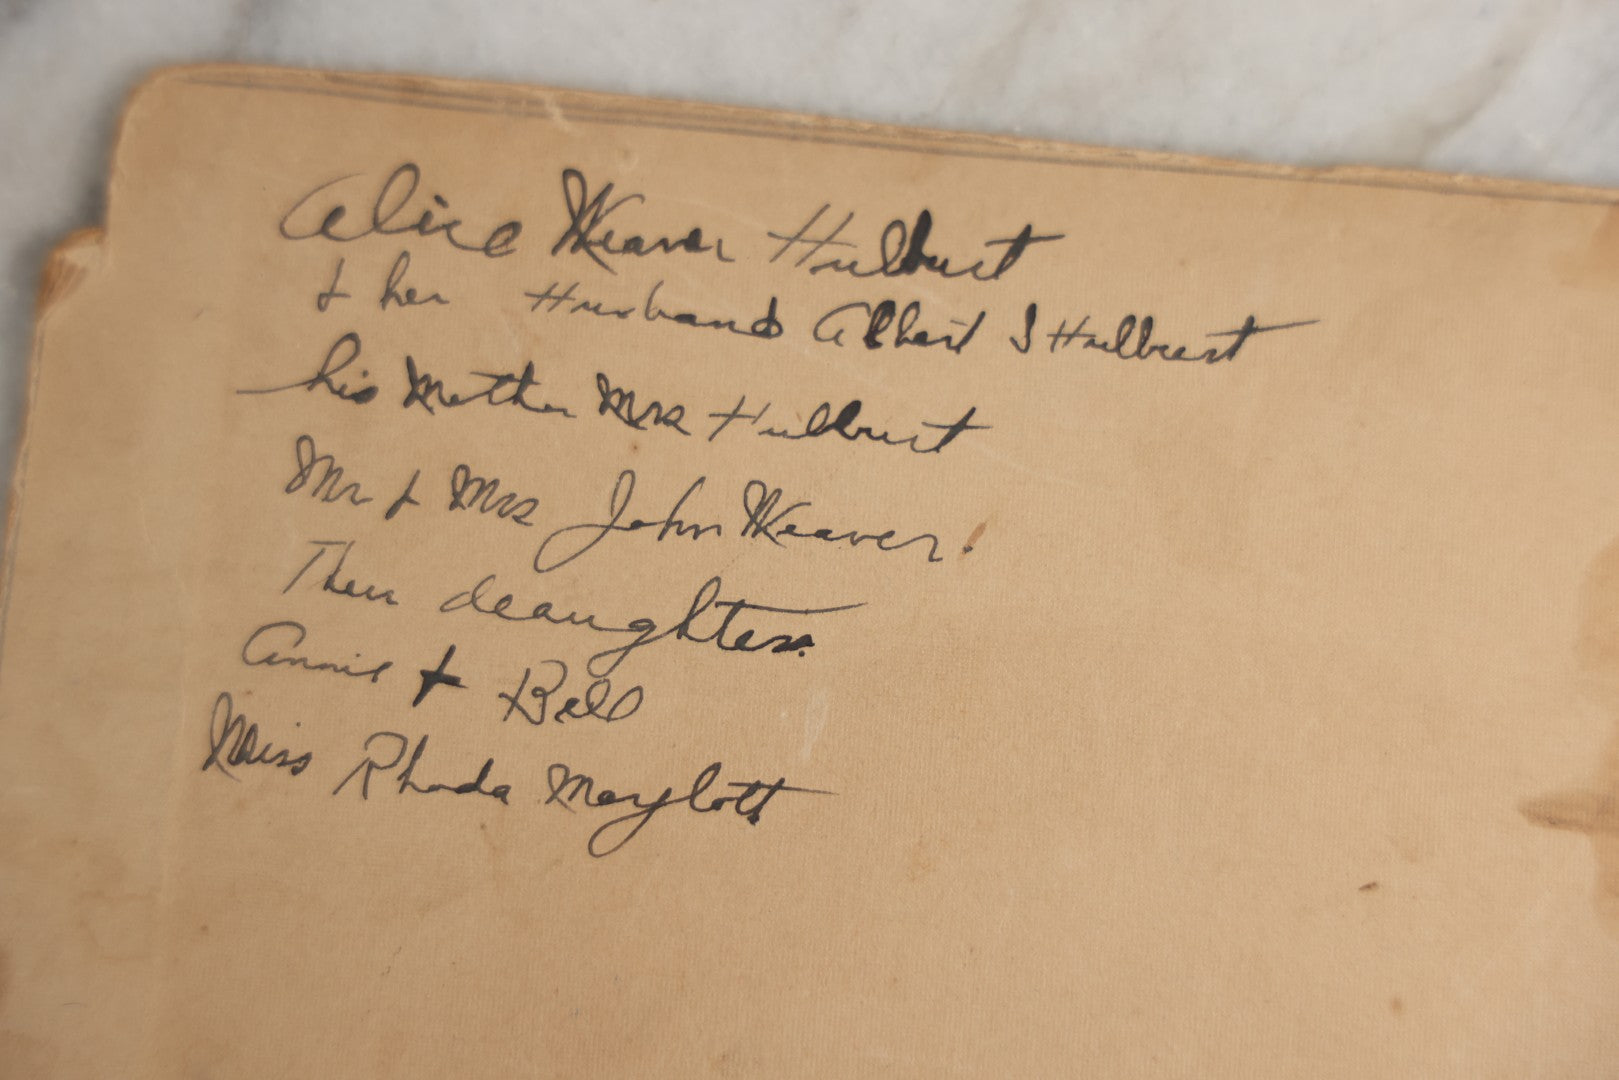 Alice Weaver Hulburt
& her Husband Albert S Hulburt
his Mother Mrs Hulburt
Mr & Mrs John Weaver.
Their deaughters.
Annie & Bell
Miss Rhoda Maylott